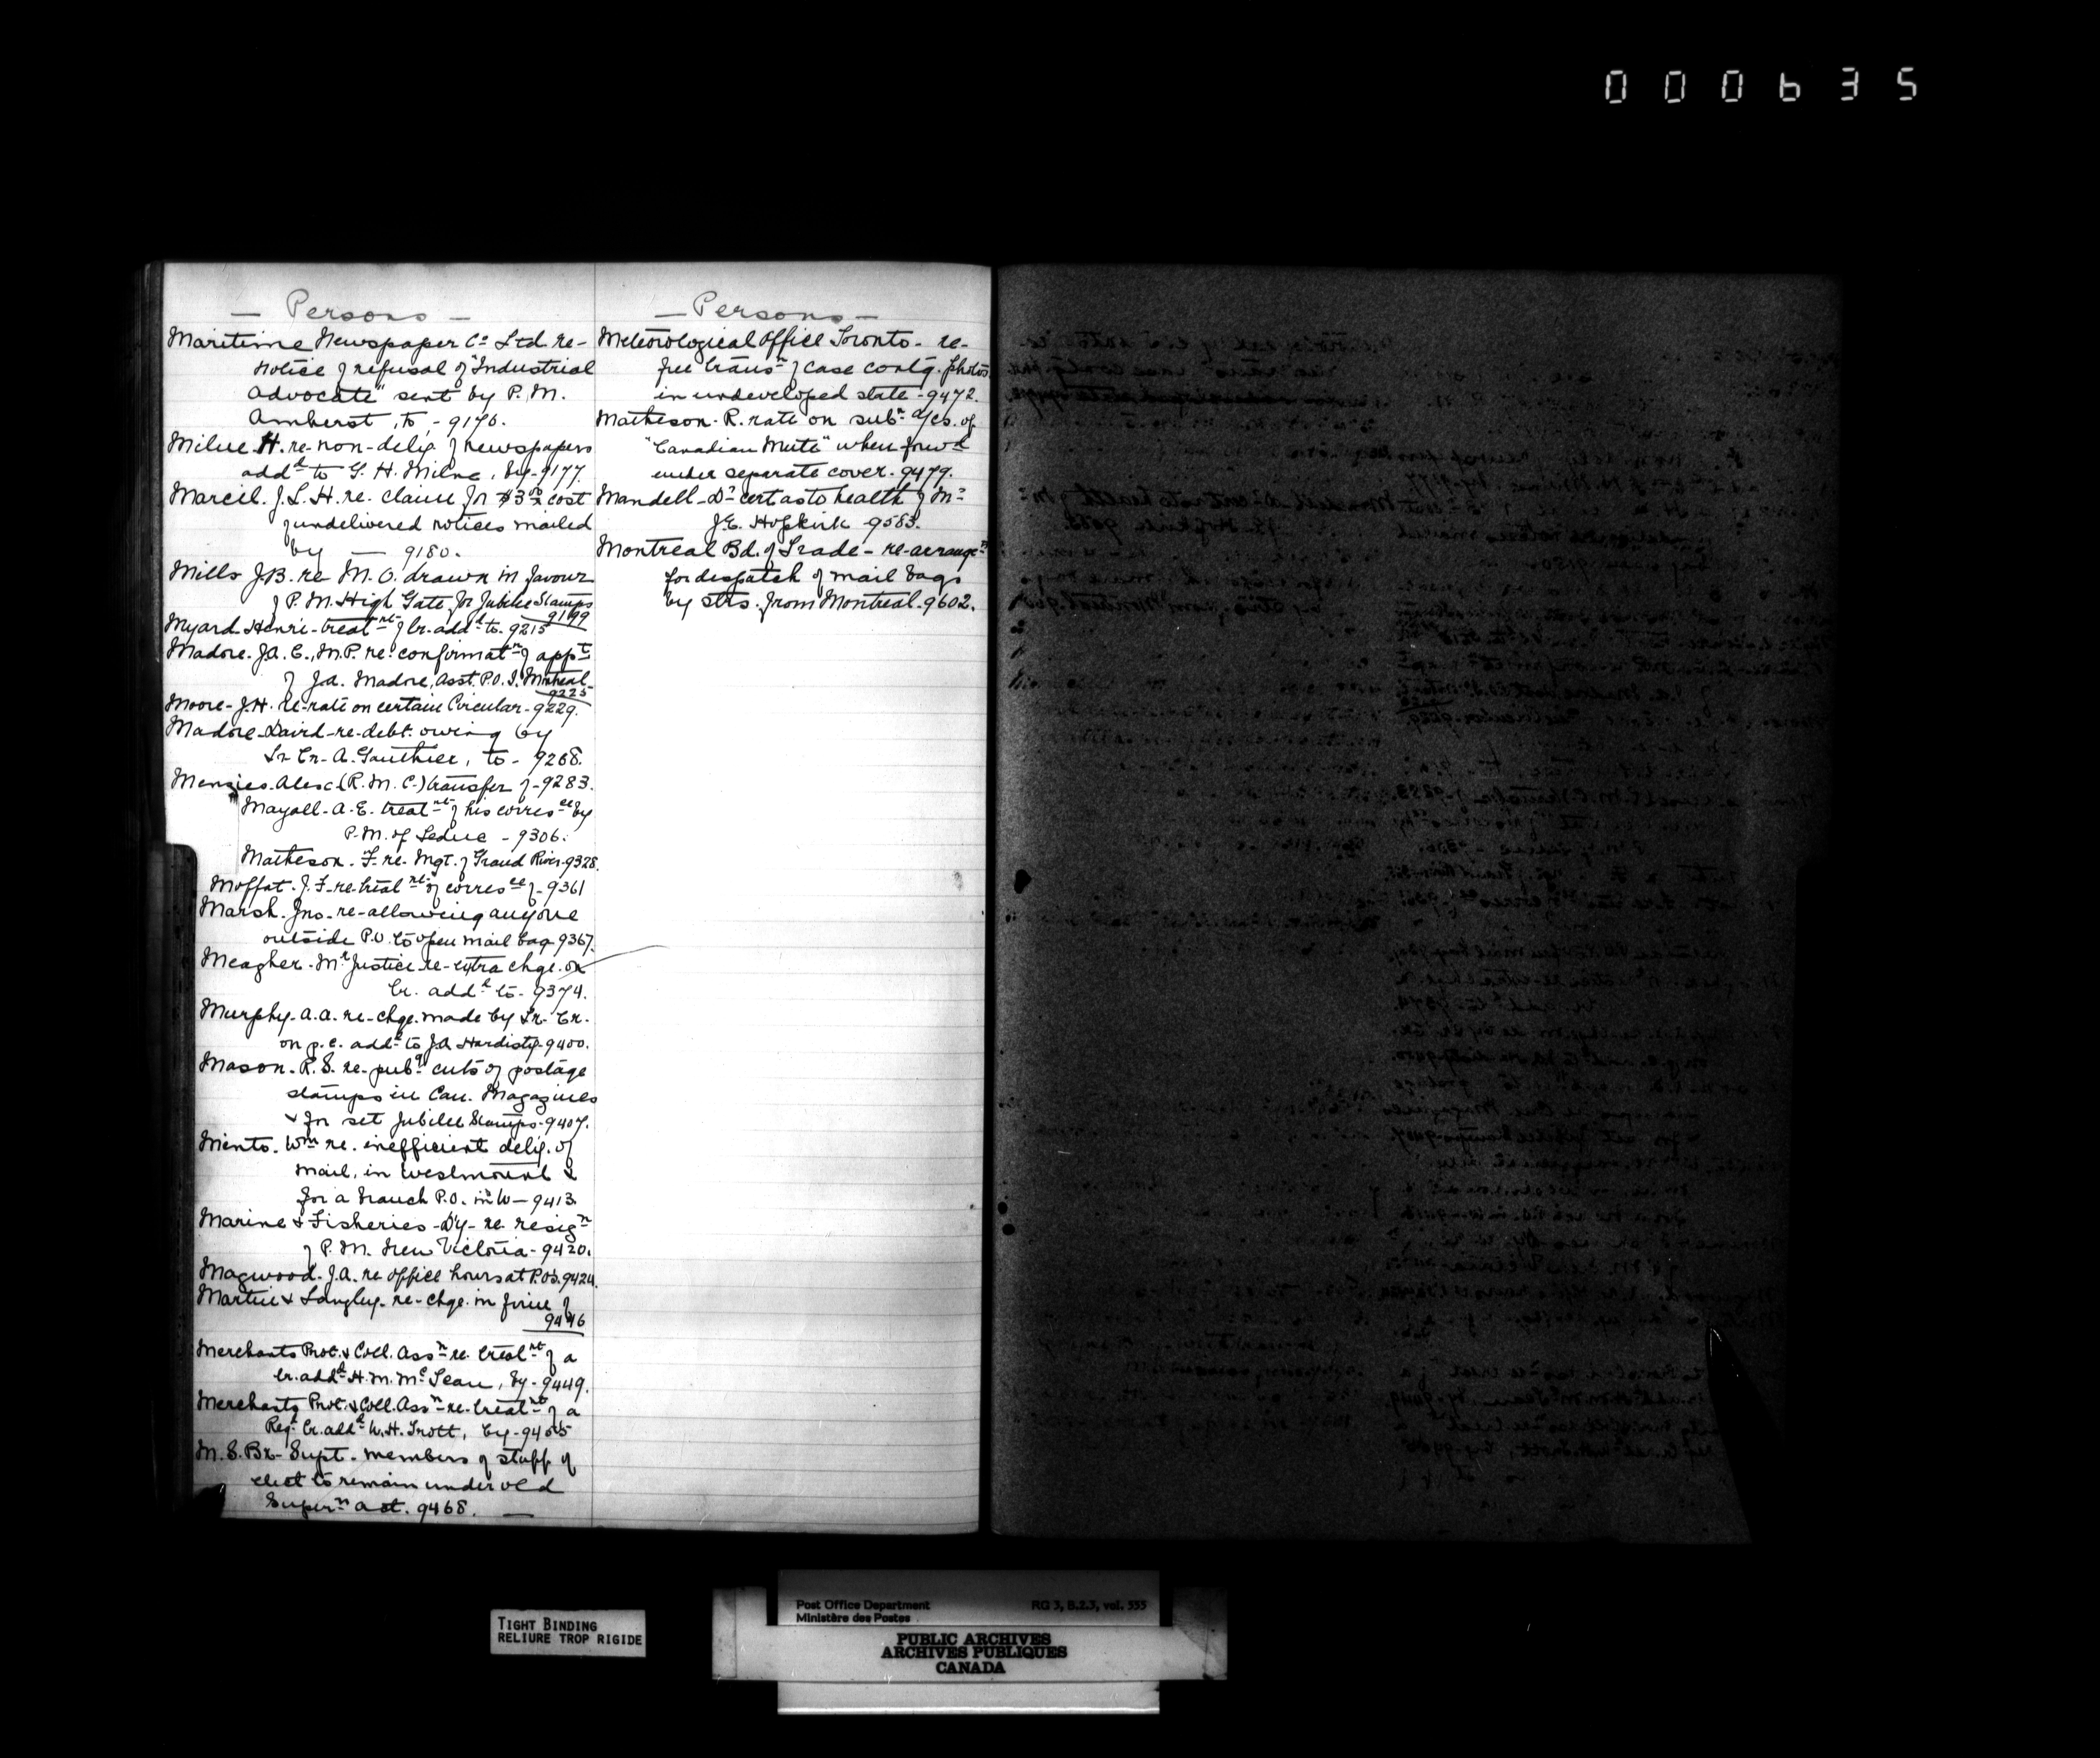 000635
— Persons —
Maritime Newspaper Co Ltd re-
notice of refusal of "Industrial
Advocate" sent by P.M.
Amherst, to, - 9176.
Milne H. re non-deliy of newspapers
addd to G. H. Milne, by - 9177.
Marcil. J.L.H. re. claim for $3.00 cost
of undelivered notices mailed
by — 9180.
Mills J.B. re M.O. drawn in favour
of P.M. High Gate for Jubilee Stamps
9199
Myard Henri - treatmt of lr. addd to - 9215
Madore. J.A.C., M.P. re. confirmatn of appt
of J.A. Madore, Asst. P.O.I. Montreal -
9225
Moore - J.H. re-rate on certain Circular - 9229.
Madore David - re-debt owing by
Lr Cr. A. Gauthier, to - 9268.
Menzies Alex (R.M.C.) transfer of - 9283.
Mayall - A.E. treatmt of his correscе by
P.M. of Leduc - 9306.
Matheson. F. re. Mgt. of Grand River - 9328.
Moffat. J.F. re. treatmt of corresce of - 9361
Marsh. Jno. re-allowing anyone
outside P.O. to open mail bag 9367.
Meagher. Mr Justice re-extra chge. on
lr. addd to - 9374.
Murphy. A.A. re-chge. made by Lr. Cr.
on p.c. addd to J.A. Hardisty - 9400.
Mason. R.S. re-pubg cuts of postage
stamps in Can. Magazines
& for set Jubilee Stamps - 9407.
Minto. Wm re. inefficient deliy. of
mail, in Westmount &
for a branch P.O. in W — 9413
Marine & Fisheries - Dy - re resign
of P.M. New Victoria - 9420.
Magwood. J.A. re office hours at P.O's. 9424.
Martin & Langley - re-chge. in firm of
9446
Merchants Prot. & Coll. Assn re. treatmt of a
lr. addd H.M. McLean, by - 9449.
Merchants Prot. & Coll. Assn re. treatmt of a
Regd lr. addd W.H. Trott, by - 9455
M.S. Br - Supt. members of staff of
elect to remain under old
Supern Act. 9468. —
— Persons —
Meteorological Office Toronto - re-
free transn of case contg. photos
in undeveloped state - 9472.
Matheson. R. rate on subn a/cs. of
"Canadian Mute" when forwd
under separate cover. 9479.
Mandell - Dr cert as to health of Mr
J.E. Hopkirk - 9583.
Montreal Bd. of Trade - re-arrangemt
for despatch of mail bags
by strs. from Montreal. 9602.
TIGHT BINDING
RELIURE TROP RIGIDE
Post Office Department RG 3, B.2.3, vol. 555
Ministère des Postes
PUBLIC ARCHIVES
ARCHIVES PUBLIQUES
CANADA